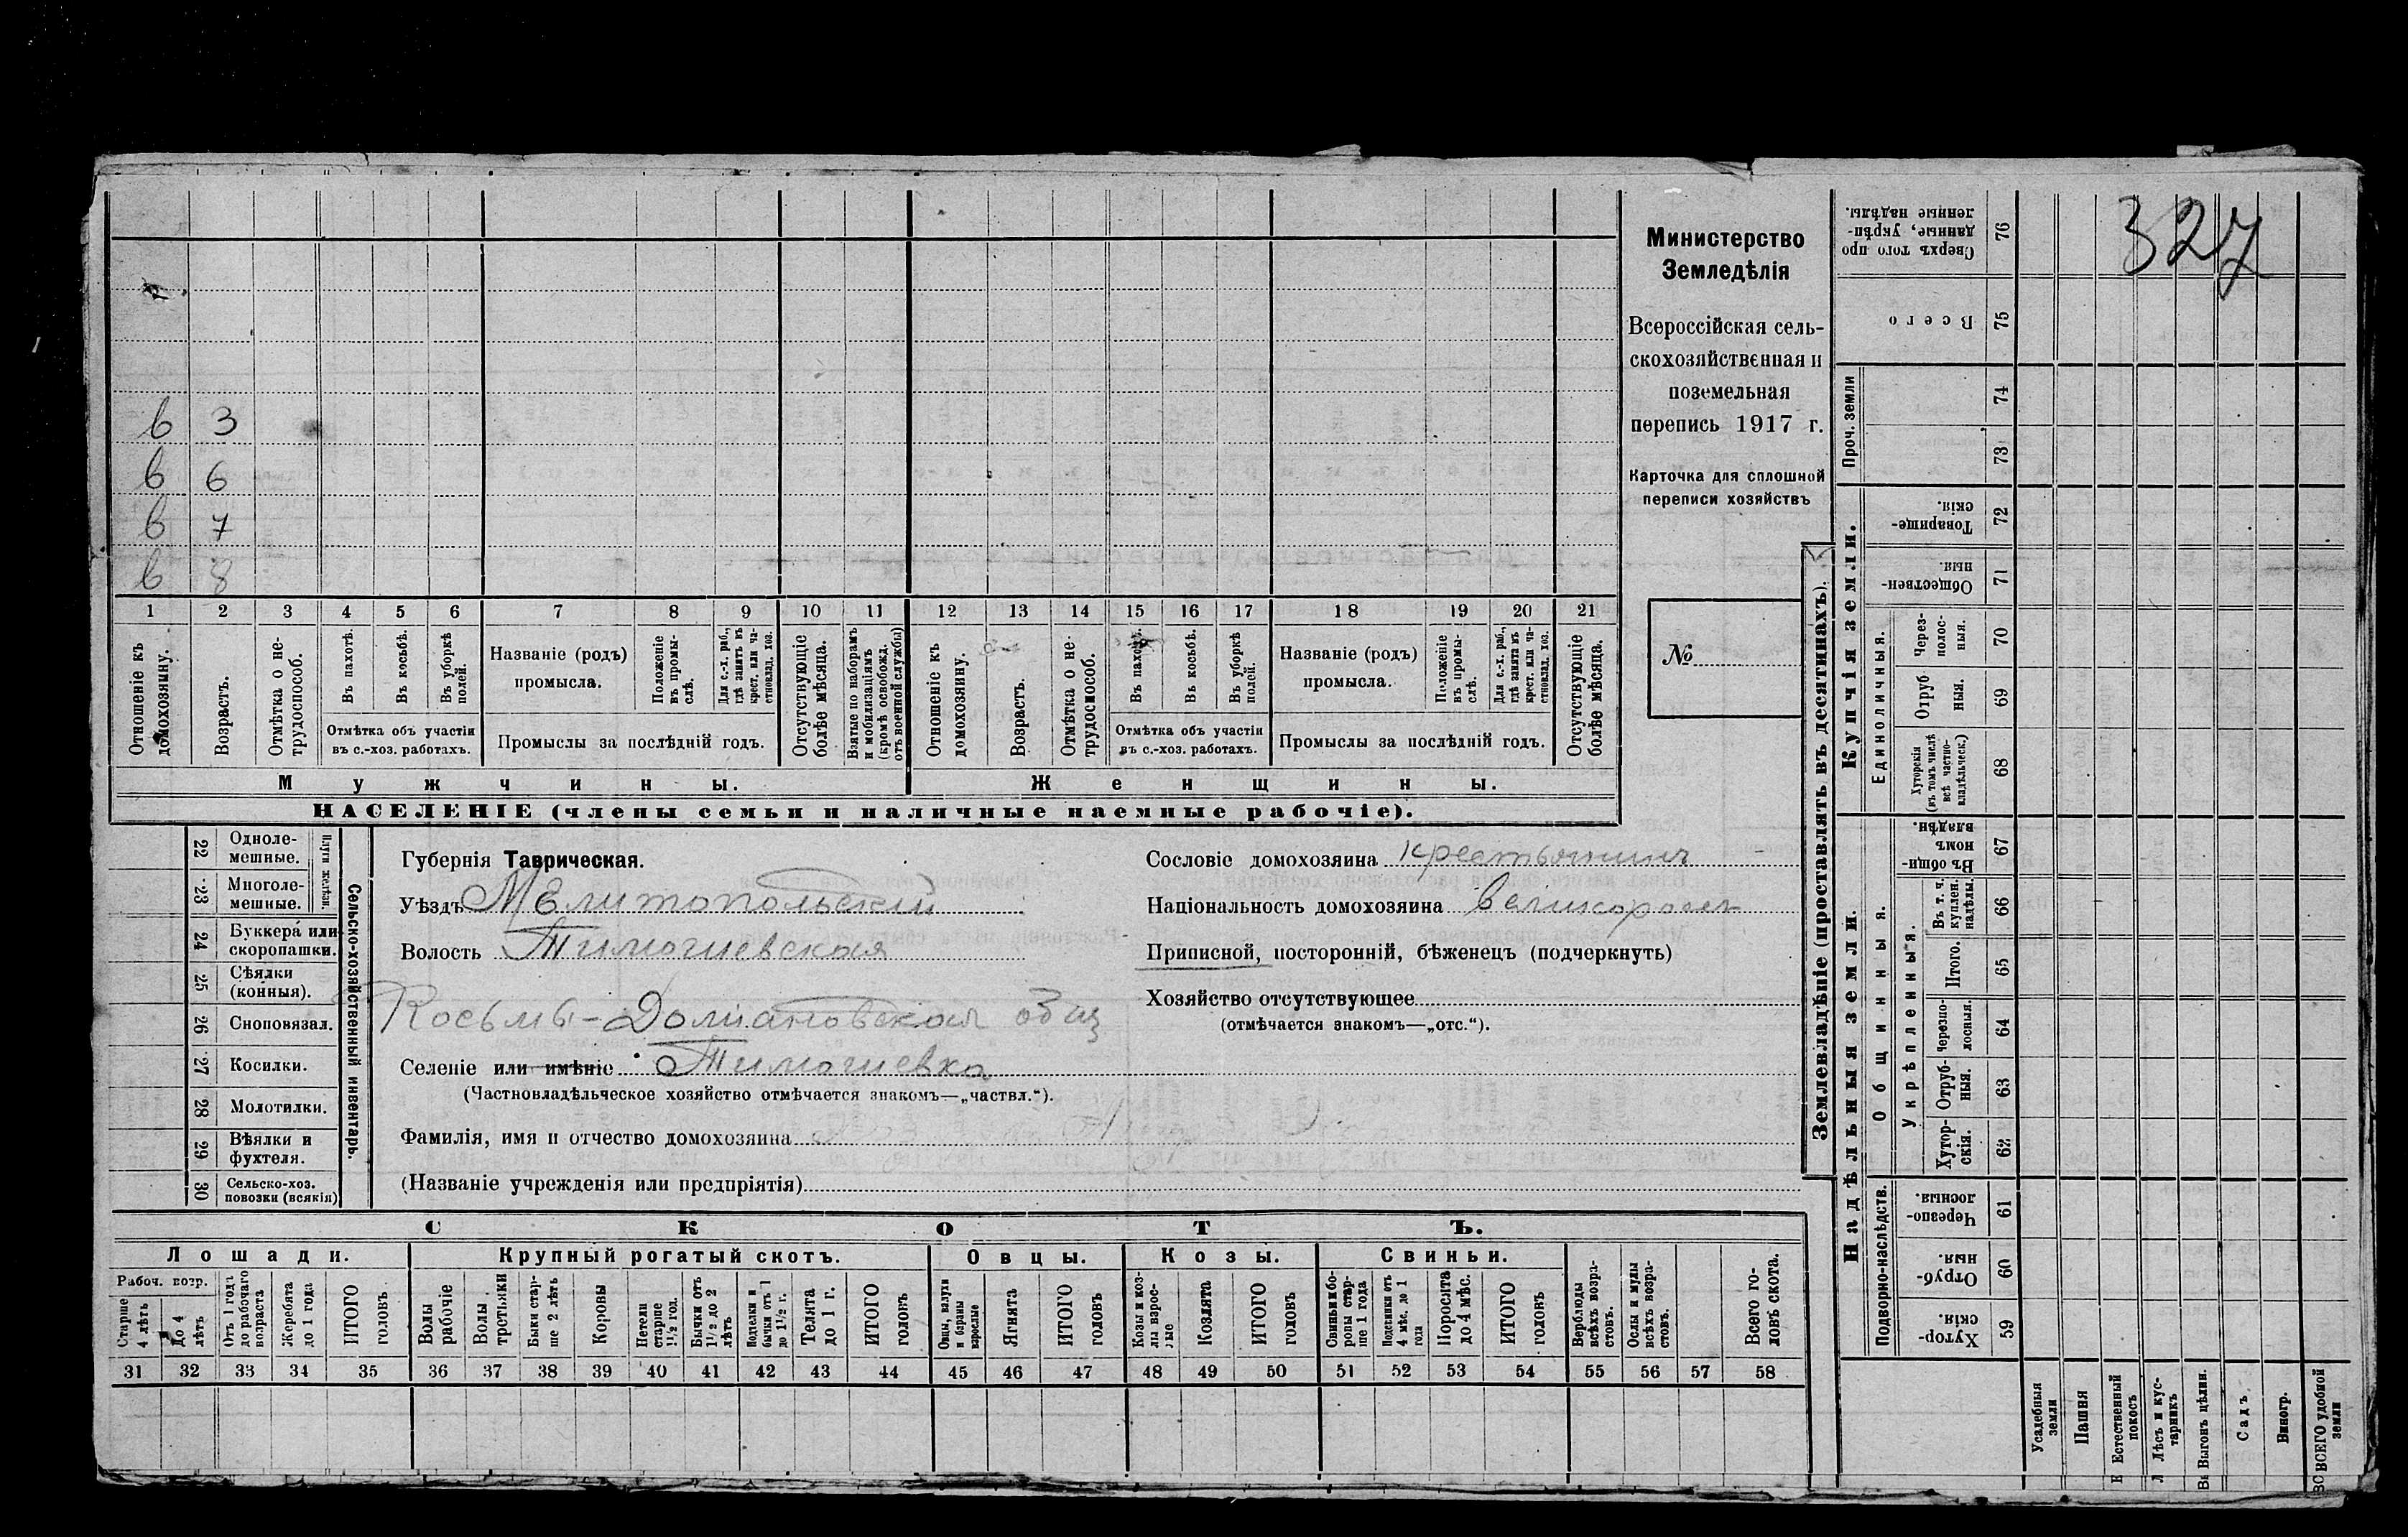 327
Министерство
Земледѣлія
Всероссійская сель-
скохозяйственная и
поземельная
перепись 1917 г.
Карточка для сплошной
переписи хозяйствъ
№
в 3
в 6
в 7
в 8
1 2 3 4 5 6 7 8 9 10 11 12 13 14 15 16 17 18 19 20 21
Отношеніе къ домохозяину.
Возрастъ.
Отмѣтка о не-трудоспособ.
Въ пахотѣ.
Въ косьбѣ.
Въ уборкѣ полей.
Отмѣтка объ участіи
въ с.-хоз. работахъ.
Названіе (родъ)
промысла.
Положеніе въ промы-слѣ.
Для с.-х. раб., гдѣ занятъ въ крест. или ча-стновлад. хоз.
Промыслы за послѣдній годъ.
Отсутствующіе болѣе мѣсяца.
Взятые по наборамъ и мобилизаціямъ (кромѣ освобожд. отъ военной службы)
Отношеніе къ домохозяину.
Возрастъ.
Отмѣтка о не-трудоспособ.
Въ пахотѣ.
Въ косьбѣ.
Въ уборкѣ полей.
Отмѣтка объ участіи
въ с.-хоз. работахъ.
Названіе (родъ)
промысла.
Положеніе въ промы-слѣ.
Для с.-х. раб., гдѣ занята въ крест. или ча-стновлад. хоз.
Промыслы за послѣдній годъ.
Отсутствующіе болѣе мѣсяца.
Мужчины. Женщины.
НАСЕЛЕНІЕ (члены семьи и наличные наемные рабочіе).
22 Одноле-мешные.
23 Многоле-мешные.
Плуги желѣзн.
24 Буккера или скоропашки.
25 Сѣялки (конныя).
26 Сноповязал.
27 Косилки.
28 Молотилки.
29 Вѣялки и фухтеля.
30 Сельско-хоз. повозки (всякія)
Сельско-хозяйственный инвентарь.
Губернія Таврическая.
Уѣздъ Мелитопольскій
Волость Тимошевская
Косьмы-Домиановская общ
Селеніе или имѣніе Тимошевка
(Частновладѣльческое хозяйство отмѣчается знакомъ—„частвл.“).
Фамилія, имя и отчество домохозяина
(Названіе учрежденія или предпріятія)
Сословіе домохозяина крестьянинъ
Національность домохозяина великоросъ
Приписной, посторонній, бѣженецъ (подчеркнуть)
Хозяйство отсутствующее
(отмѣчается знакомъ—„отс.“).
СКОТЪ.
Лошади. Крупный рогатый скотъ. Овцы. Козы. Свиньи.
Рабоч. возр.
Старше 4 лѣтъ
До 4 лѣтъ
Отъ 1 годъ до рабочаго возраста
Жеребята до 1 года
ИТОГО головъ
Волы рабочіе
Волы третьяки
Быки стар-ше 2 лѣтъ
Коровы
Нетели старше 1½ год.
Бычки отъ 1½ до 2 лѣтъ
Подтелки и бычки отъ 1 до 1½ г.
Телята до 1 г.
ИТОГО головъ
Овцы, валухи и бараны взрослые
Ягнята
ИТОГО головъ
Козы и коз-лы взрос-лые
Козлята
ИТОГО головъ
Свиньи бо-ровы стар-ше 1 года
Подсвинки отъ 4 мѣс. до 1 года
Поросята до 4 мѣс.
ИТОГО головъ
Верблюды всѣхъ возра-стовъ.
Ослы и мулы всѣхъ возра-стовъ.
Всего го-ловъ скота.
31 32 33 34 35 36 37 38 39 40 41 42 43 44 45 46 47 48 49 50 51 52 53 54 55 56 57 58
Землевладѣніе (проставлять въ десятинахъ).
Надѣльныя земли.
Купчія земли.
Проч. земли
Подворно-наслѣдств.
Общинныя.
Укрѣпленныя.
Единоличныя.
59 Хутор-скія.
60 Отруб-ныя.
61 Черезпо-лосныя.
62 Хутор-скія.
63 Отруб-ныя.
64 Черезпо-лосныя.
65 Итого.
66 Въ т. ч. куплен. надѣлы.
67 Въ общи-номъ владѣн.
68 Хуторскія (въ томъ числѣ всѣ частно-владѣльческ.)
69 Отруб ныя.
70 Черезполос-ныя.
71 Обществен-ныя.
72 Товарище-скія.
73
74
75 Всего
76 Сверхъ того про данные, укрѣп-ленные надѣлы.
Усадебныя земли
Пашня
Естественный покосъ
Лѣсъ и кус-тарникъ
Выгонъ цѣлин.
Садъ
Виногр.
ВСЕГО удобной земли